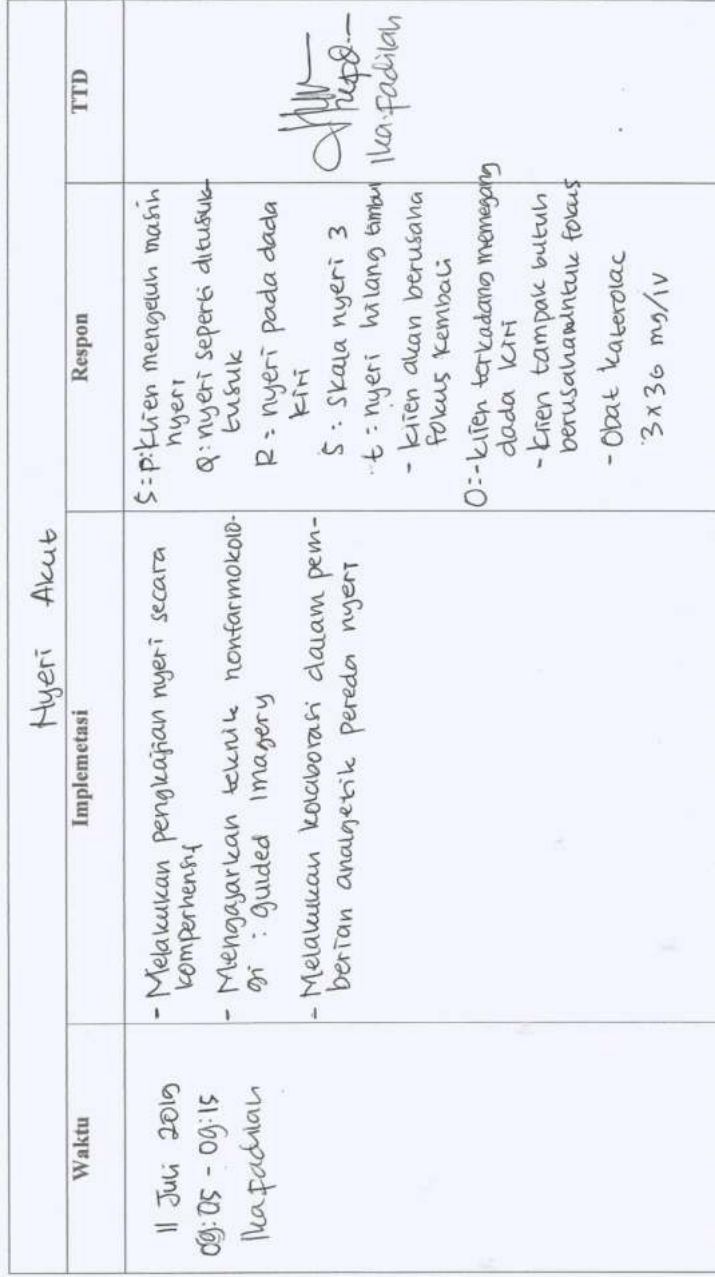 Nyeri Akut
Waktu
Implemetasi
Respon
TTD
11 Juli 2019
09:05 - 09:15
Ika fadilah
- Melakukan pengkajian nyeri secara
komperhensif
- Mengajarkan teknik nonfarmokolo-
gi : guided Imagery
- Melakukan kolaborasi dalam pem-
berian analgetik pereda nyeri
S=P:Klien mengeluh masih
nyeri
Q: nyeri seperti ditusuk-
tusuk
R = nyeri pada dada
kiri
S : Skala nyeri 3
t : nyeri hilang timbul
- klien akan berusaha
fokus kembali
O:-klien terkadang memegang
dada kiri
- klien tampak butuh
berusaha untuk fokus
- Obat katerolac
3x36 mg/iv
Ika fadilah